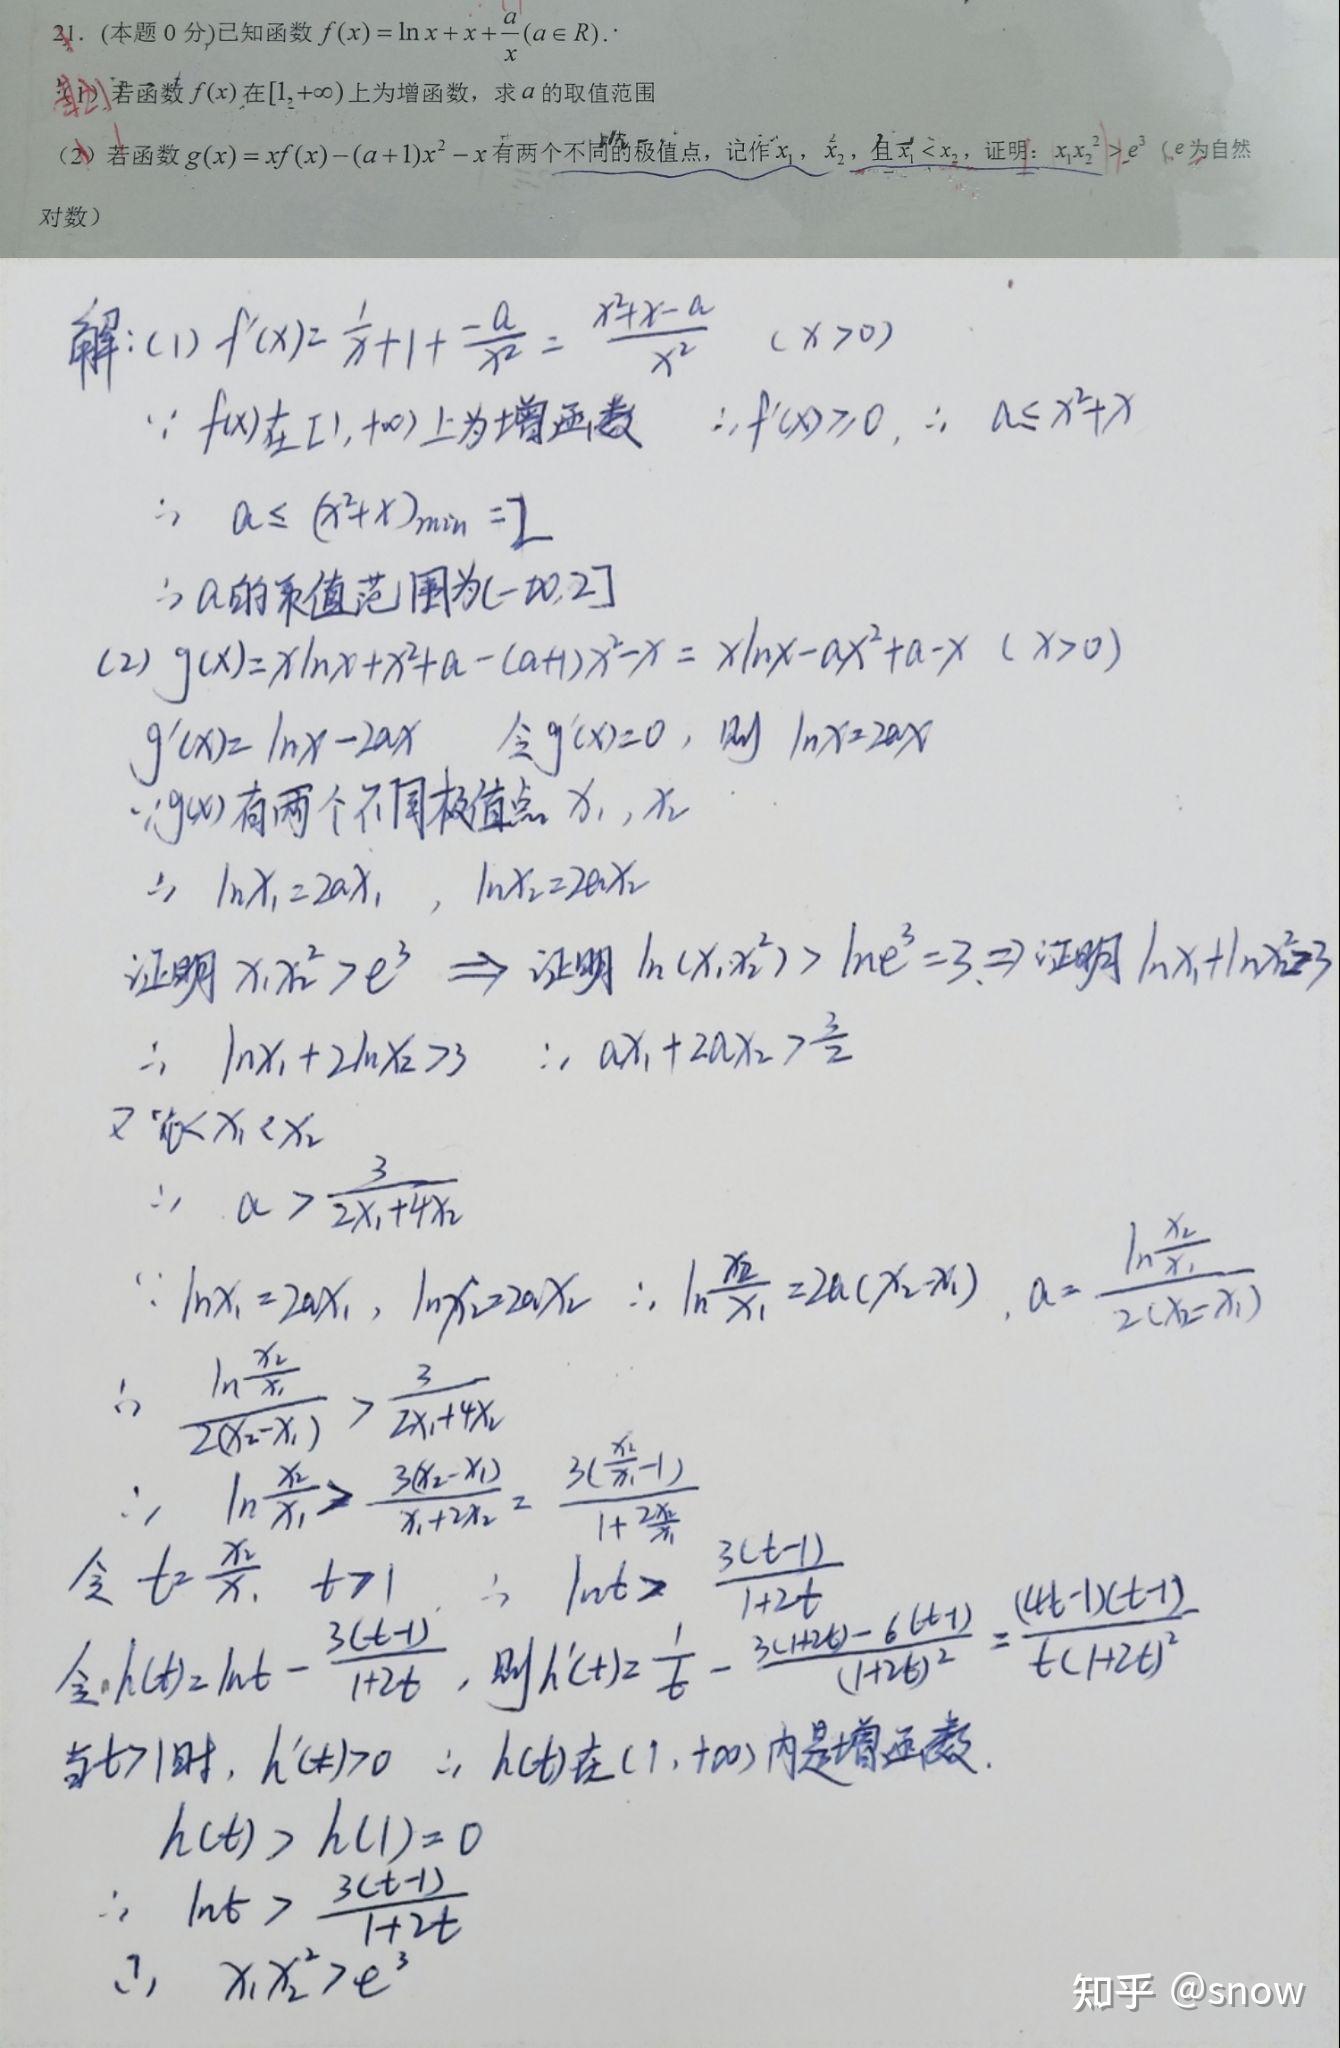 21．(本题 0 分)已知函数 f(x)=lnx+x+a/x(a∈R).
(1) 若函数 f(x) 在[1,+∞)上为增函数，求 a 的取值范围
(2) 若函数 g(x)=xf(x)−(a+1)x²−x 有两个不同的极值点，记作 x₁，x₂，且 x₁<x₂，证明：x₁x₂²>e³（e 为自然
对数）
解:(1) f'(x)=1/x+1+(-a)/x²=(x²+x-a)/x² (x>0)
∵ f(x)在[1,+∞)上为增函数 ∴f'(x)≥0, ∴ a≤x²+x
∴ a≤(x²+x)min=2
∴a的取值范围为(-∞,2]
(2) g(x)=xlnx+x²+a-(a+1)x²-x=xlnx-ax²+a-x (x>0)
g'(x)=lnx-2ax 令g'(x)=0, 则 lnx=2ax
∵g(x)有两个不同极值点 x₁, x₂
∴ lnx₁=2ax₁, lnx₂=2ax₂
证明 x₁x₂²>e³ ⇒ 证明 ln(x₁x₂²)>lne³=3 ⇒ 证明 lnx₁+lnx₂²>3
∴ lnx₁+2lnx₂>3 ∴ ax₁+2ax₂>3/2
又∵0<x₁<x₂
∴ a>3/(2x₁+4x₂)
∵ lnx₁=2ax₁, lnx₂=2ax₂ ∴ ln(x₂/x₁)=2a(x₂-x₁), a=ln(x₂/x₁)/(2(x₂-x₁))
∴ ln(x₂/x₁)/(2(x₂-x₁))>3/(2x₁+4x₂)
∴ ln(x₂/x₁)>3(x₂-x₁)/(x₁+2x₂)=3(x₂/x₁-1)/(1+2x₂/x₁)
令 t=x₂/x₁ t>1 ∴ lnt>3(t-1)/(1+2t)
令 h(t)=lnt-3(t-1)/(1+2t), 则h'(t)=1/t-(3(1+2t)-6(t-1))/(1+2t)²=(4t-1)(t-1)/(t(1+2t)²)
当t>1时, h'(t)>0 ∴ h(t)在(1,+∞)内是增函数.
h(t)>h(1)=0
∴ lnt>3(t-1)/(1+2t)
∴ x₁x₂²>e³
知乎 @snow